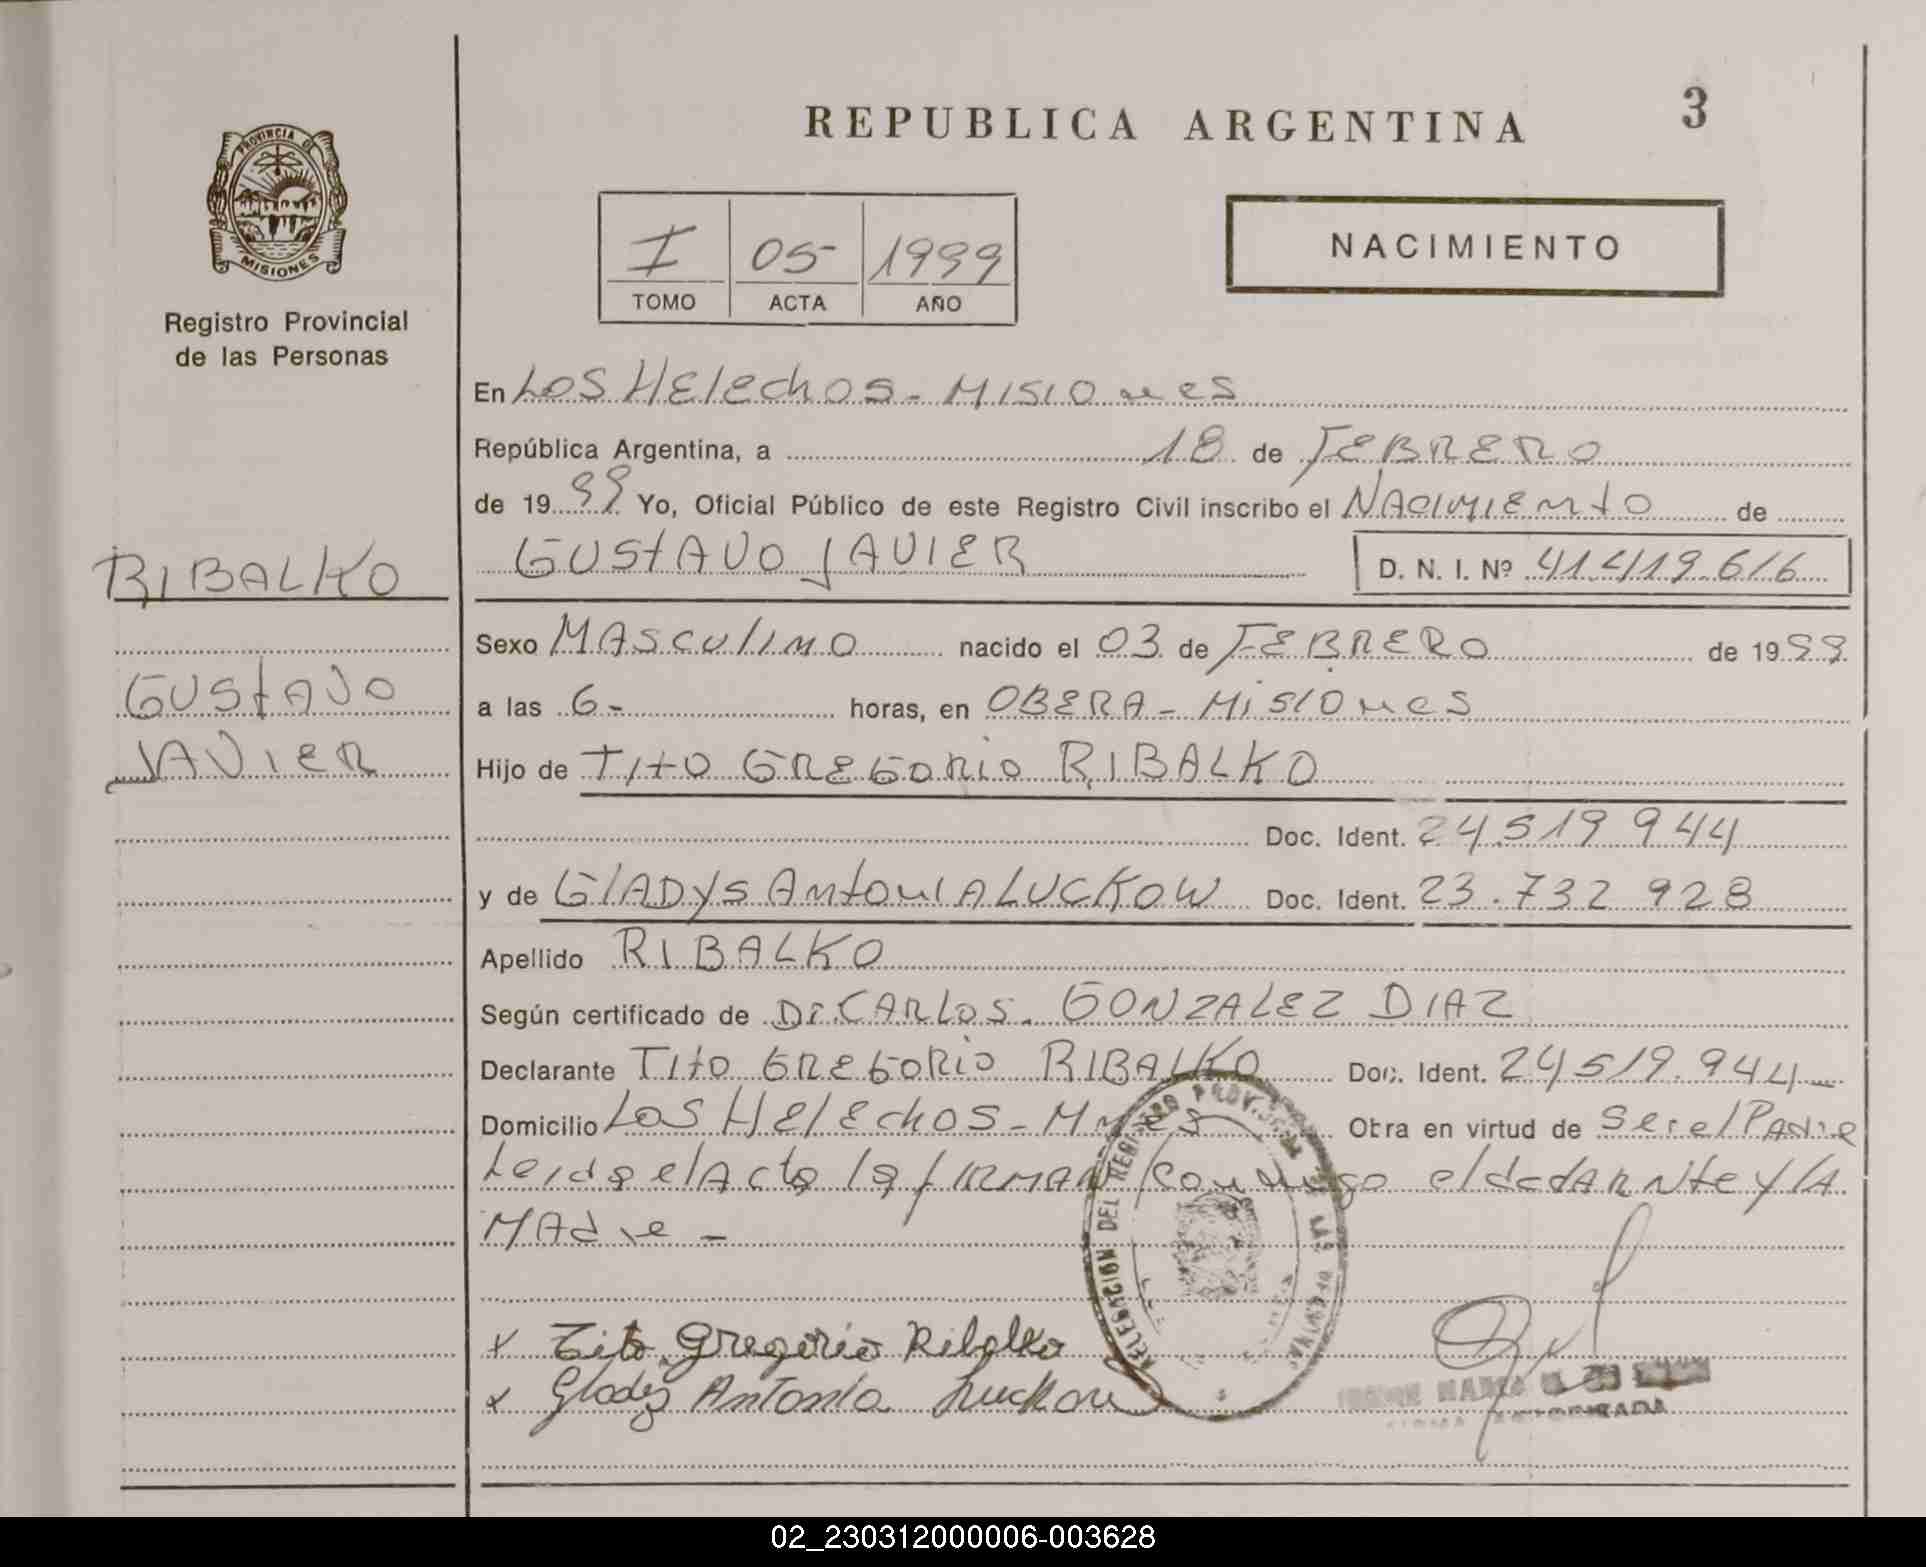 REPUBLICA ARGENTINA
3
PROVINCIA DE
MISIONES
Registro Provincial
de las Personas
I 05 1999
TOMO ACTA AÑO
NACIMIENTO
En Los Helechos - Misiones
República Argentina, a 18 de FEBRERO
de 19 99 Yo, Oficial Público de este Registro Civil inscribo el NACIMIENTO de
GUSTAVO JAVIER D. N. I. Nº 41.419.616
RIBALKO
GUSTAVO
JAVIER
Sexo MASCULINO nacido el 03 de FEBRERO de 1999
a las 6- horas, en OBERA - MISIONES
Hijo de TITO GREGORIO RIBALKO
Doc. Ident. 24.519 944
y de GLADYS ANTONIA LUCKOW Doc. Ident. 23.732 928
Apellido RIBALKO
Según certificado de Dr. CARLOS. GONZALEZ DIAZ
Declarante TITO GREGORIO RIBALKO Doc. Ident. 24 519.944
Domicilio Los Helechos - Mnes Obra en virtud de Ser el Padre
Leida el Acta la firman conmigo el declarante y la
Madre -
x Tito Gregorio Ribalko
x Gladys Antonia Luckow
DELEGACION DEL REGISTRO PROVINCIAL DE LAS PERSONAS
MARIA
AUTORIZADA
02_230312000006-003628